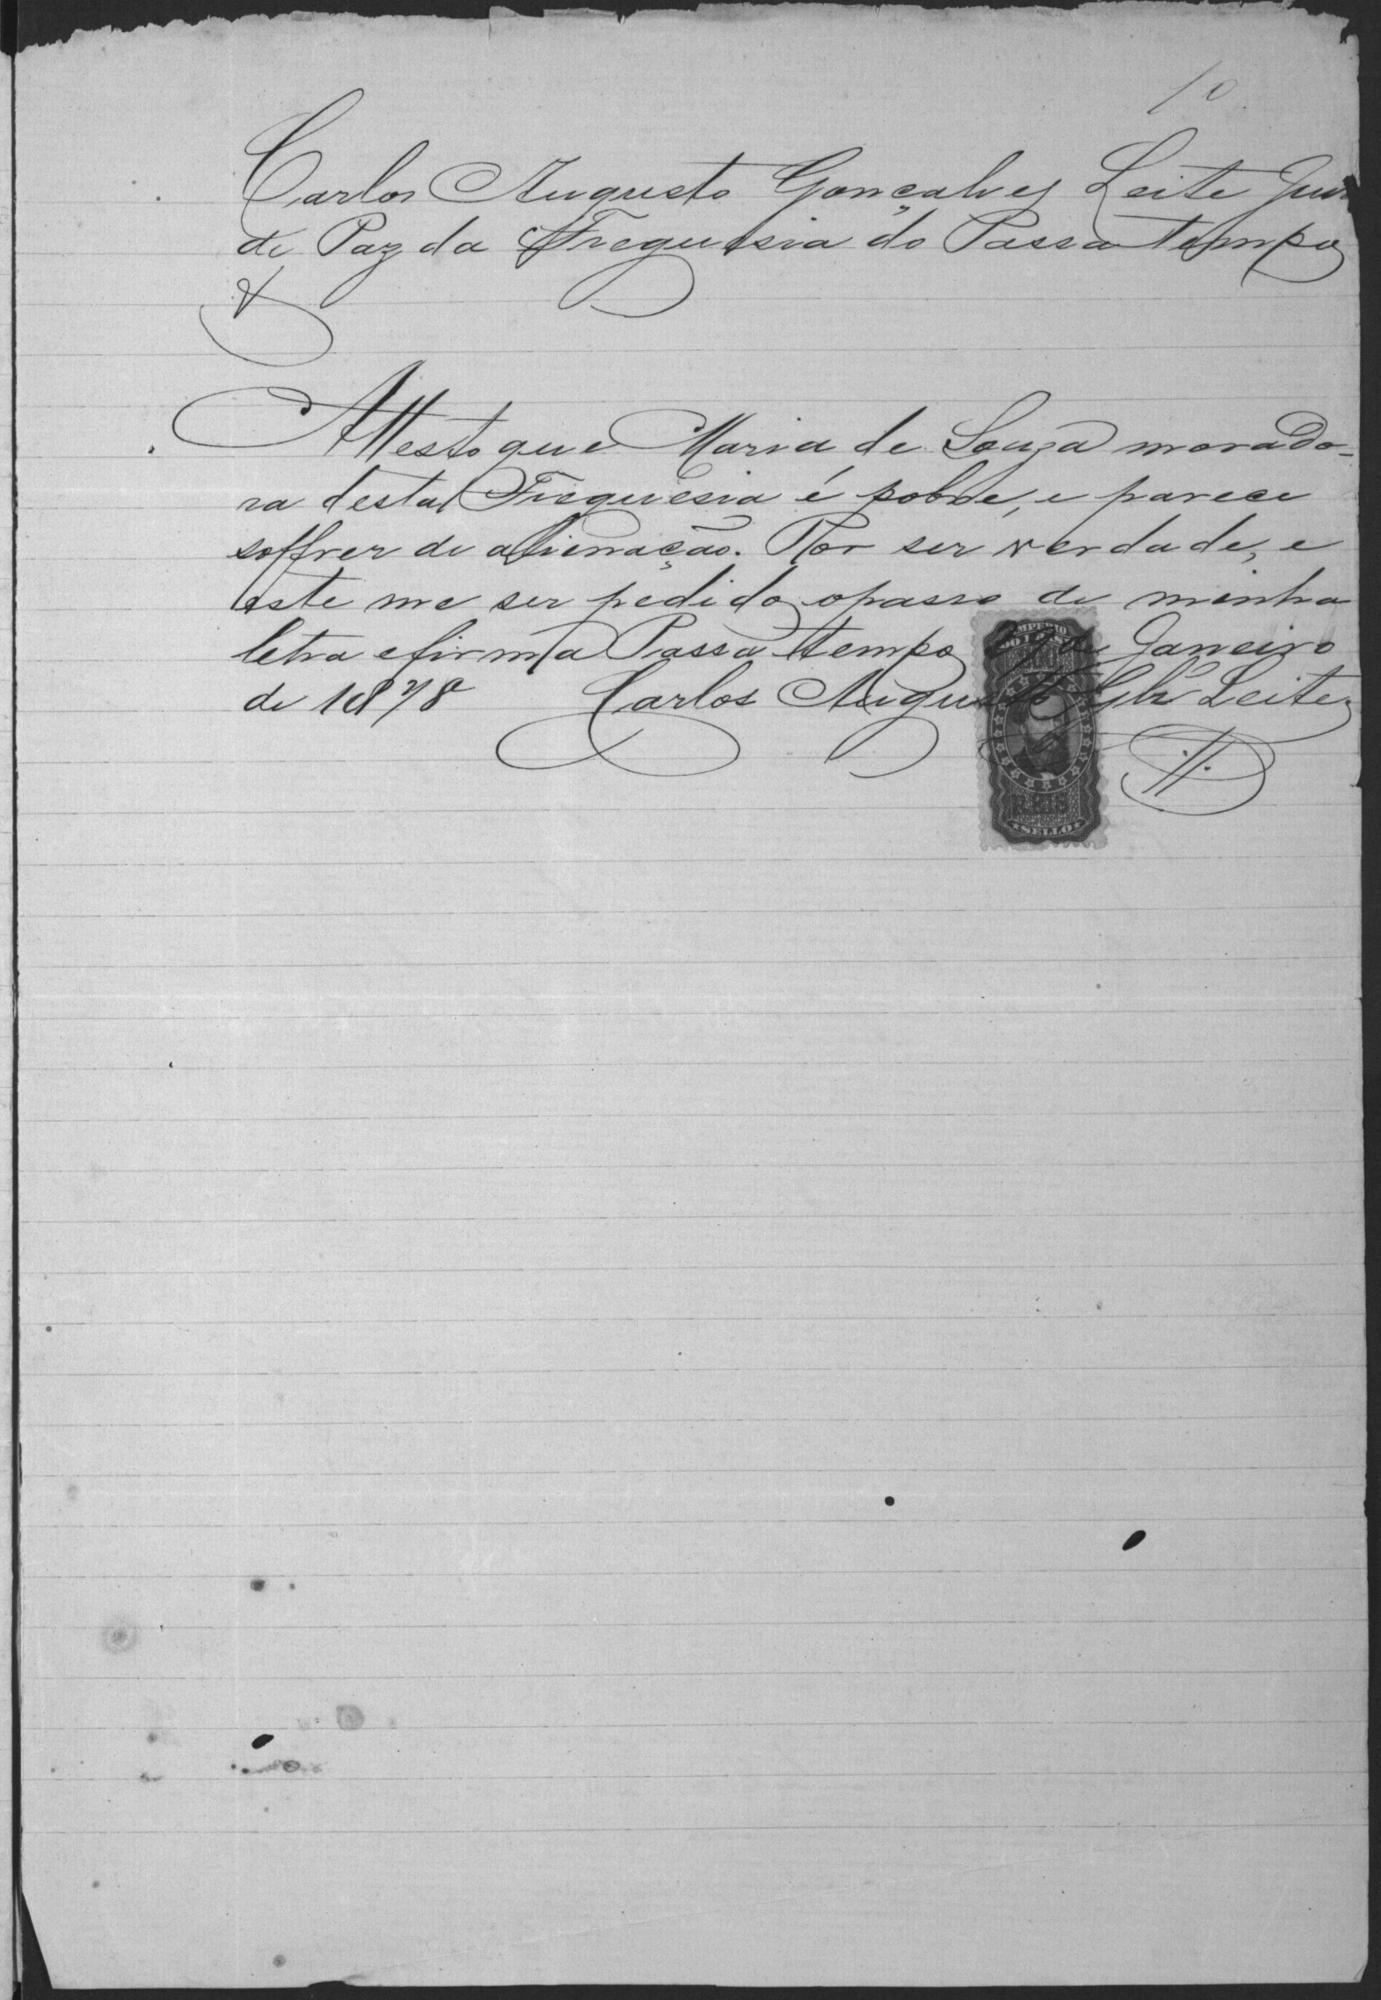 10
Carlos Augusto Gonçalves Leite Juiz
de Paz da Freguesia do Passa tempo
&
Attesto que Maria de Souza morado-
ra desta Freguesia é pobre, e parece
soffrer de alienação. Por ser verdade, e
este me ser pedido, o passo de minha
letra e firma Passa tempo de Janeiro
de 1878 Carlos Augusto Glz Leite
IMPERIO
DO BRASIL
REIS
SELLO